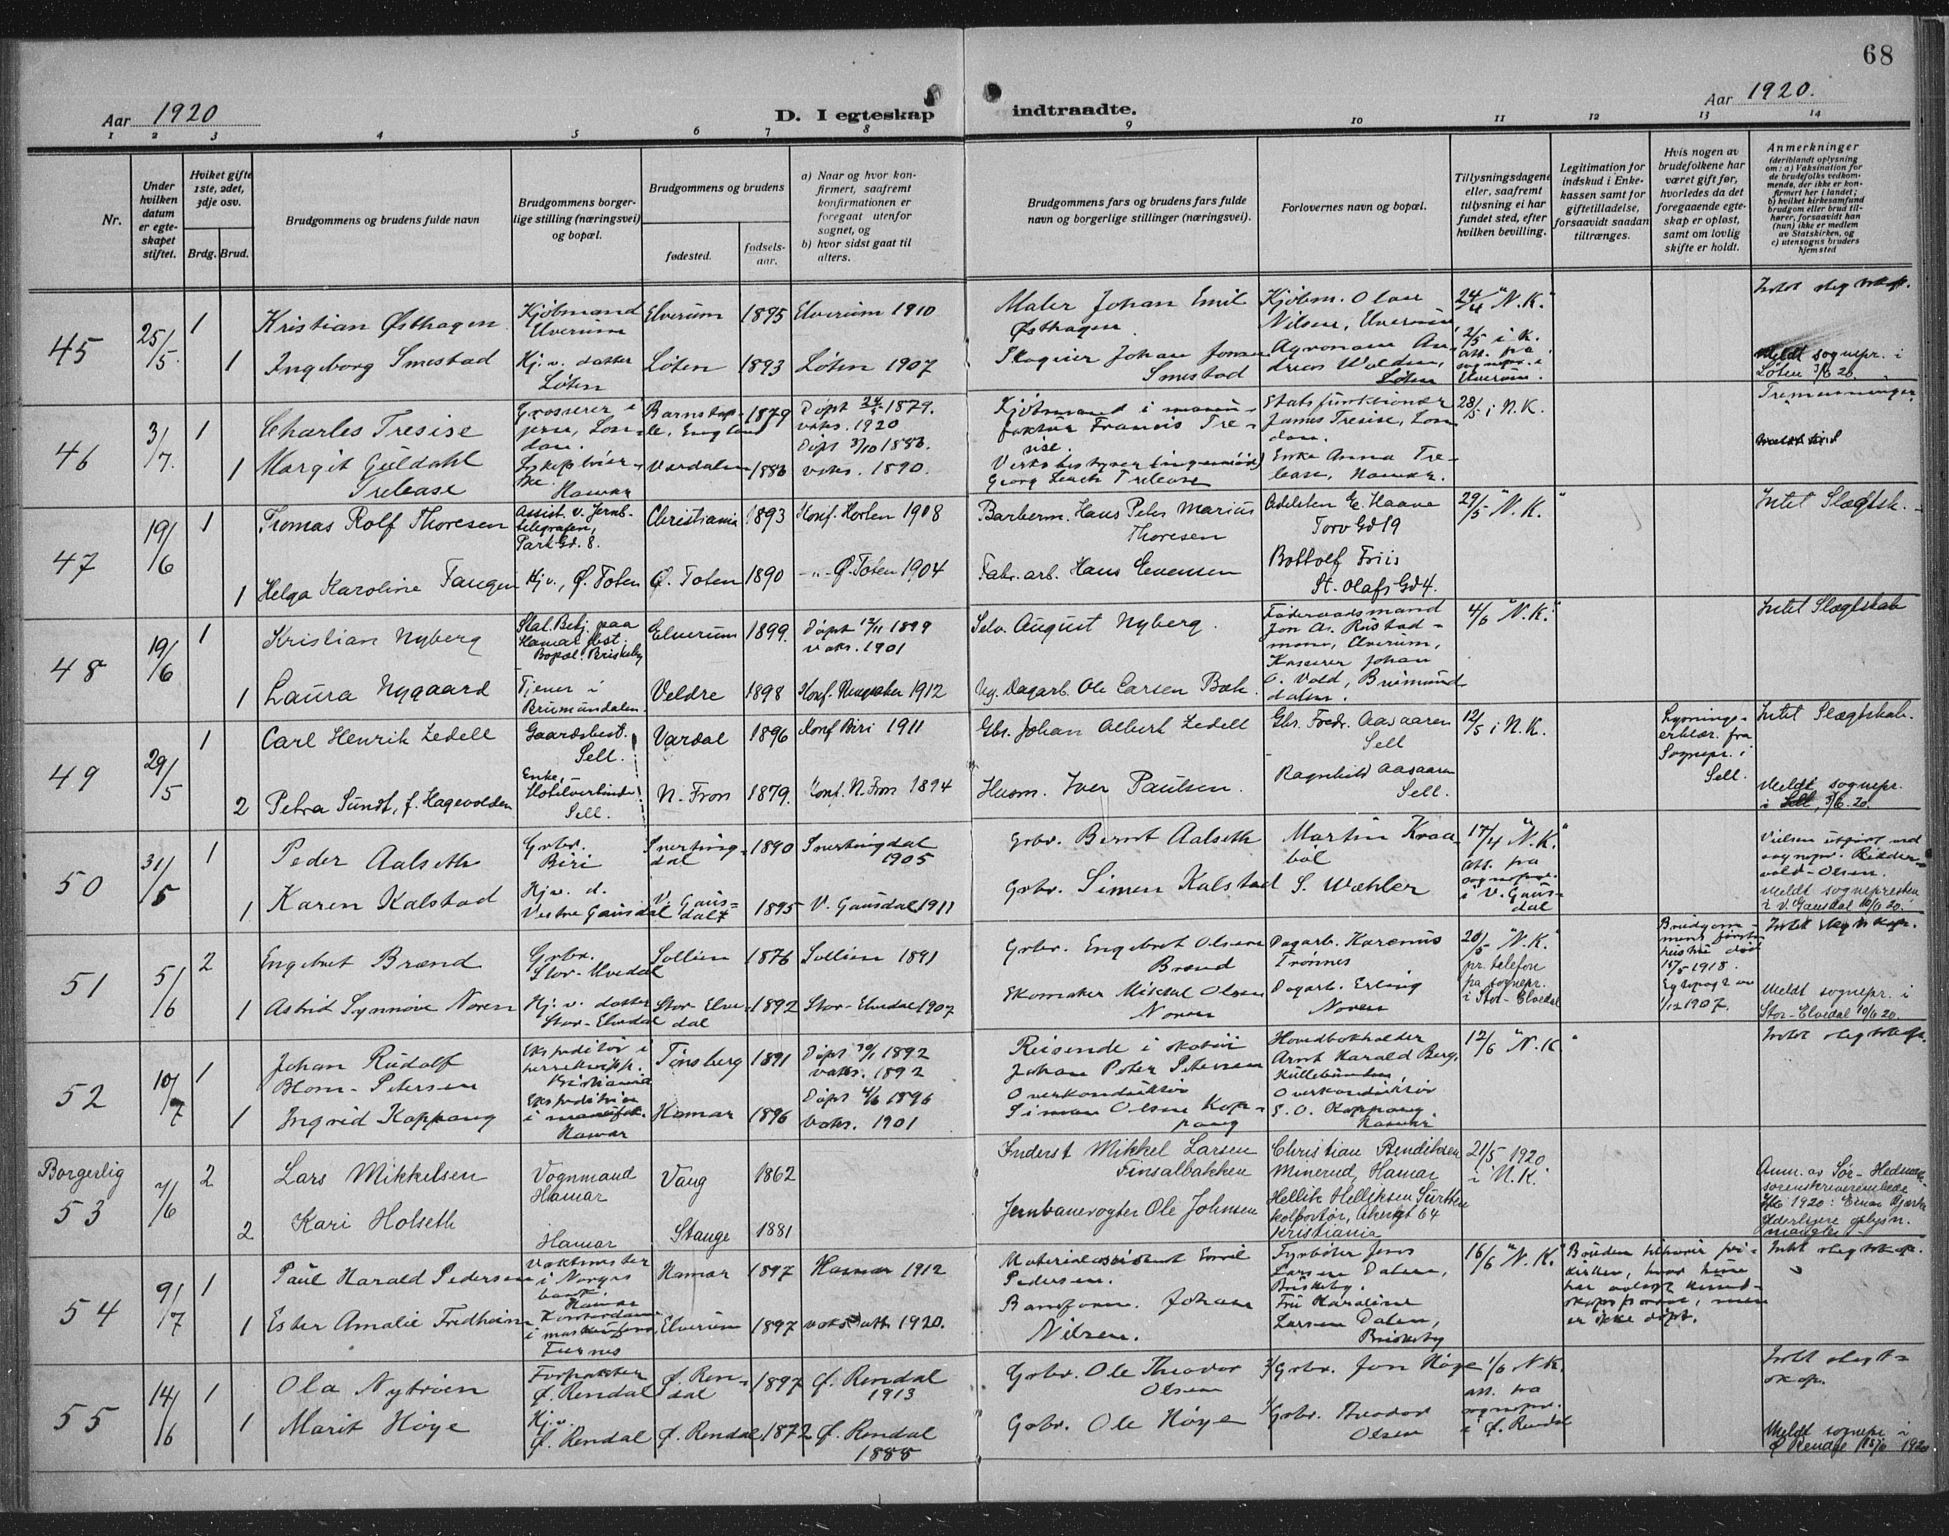 68
Aar 1920
D. I egteskap indtraadte.
Aar 1920.
1 2 3 4 5 6 7 8 9 10 11 12 13 14
Nr.
Under hvilken datum er egteskapet stiftet.
Hviket gifte 1ste, 2det, 3dje osv.
Brdg. Brud.
Brudgommens og brudens fulde navn
Brudgommens borgerlige stilling (næringsvei) og bopæl.
Brudgommens og brudens
fødested.
fødselsaar.
a) Naar og hvor konfirmert, saafremt konfirmationen er foregaat utenfor sognet, og
b) hvor sidst gaat til alters.
Brudgommens fars og brudens fars fulde navn og borgerlige stillinger (næringsvei).
Forlovernes navn og bopæl.
Tillysningsdagene eller, saafremt tillysning ei har fundet sted, efter hvilken bevilling.
Legitimation for indskud i Enkekassen samt for giftetilladelse, forsaavidt saadan tiltrænges.
Hvis nogen av brudefolkene har været gift før, hvorledes da det foregaaende egteskap er opløst, samt om lovlig skifte er holdt.
Anmerkninger
(deriblandt oplysning om: a) Vaksination for de brudefolks vedkommende, der ikke er konfirmert her i landet; b) hvilket kirkesamfund brudgom eller brud tilhører, forsaavidt han (hun) ikke er medlem av Statskirken, og c) utensogns bruders hjemsted
45 25/5 1 Kristian Østhagen Kjøbmand Elverum Elverum 1895 Elverum 1910 Maler Johan Emil Østhagen. Kjøbm. Olav Nilsen, Elverum 24/4 "N.K."
1 Ingeborg Smestad Hj. v. datter Løten Løten 1893 Løten 1907 Johan Smestad Løten 2/5 i K. att. fra sognepr. i Elverum.
Meldt sognepr. i Løten 3/6 20.
46 3/7. 1 Charles Tresise Grosserer i London. Barnstaple, England 1879 Døpt 1879. vaks. 1920 Kjøbmand i manufaktur Francis Tresise. Statsfunktionær James Tresise, London. 28/5 i N.K. Tremenninger
1 Margit Guldahl Trelease Sykepleierske Hamar Værdalen 1883 Døpt 3/10 1883. vaks. 1890. Verksbestyrer Georg Trelease Enke Anna Trelease, Hamar.
47 19/6 1 Tromas Rolf Thoresen Assist v. Jernb. telegrafen, Park Gd. 8. Christiania 1893 Konf. Horten 1908 Barberm. Hans Peter Marius Thoresen E. Haave Torv Gd 19 29/5 "N.K." Intet Slægtsk.
1 Helga Karoline Tangen Hj. v., Ø. Toten Ø. Toten 1890 -"- Ø. Toten 1904 Fabr. arb. Hans Evensen Bottolf Friis St. Olafs Gd 4.
48 19/6 1 Kristian Nyberg Bopæl: Briskeby Elverum 1899. Døpt 12/11 1899 vaks. 1901 August Nyberg. Føderaadsmand Jon As. Rustadmoen, Elverum, 4/6 "N.K." Intet Slægtskab
1 Laura Nygaard Tjener i Brumunddalen Veldre 1898 Konf. Ringsaker 1912 Dagarb. Ole Larsen Kasserer Johan Vold, Brumunddalen.
49 29/5 1 Carl Henrik Zedell Gaardsbest. Sell. Vardal 1896 Konf Biri 1911 Gbr. Johan Albert Zedell Gbr. Fredr. Aasaaren Sell 12/5 i N.K. Lysningserklær. fra Sognepr. i Sell. Intet Slægtskab.
2 Petra Sundt, f. Hagevolden Enke, Sell. N. Fron 1879. Konf. N. Fron 1894 Husm. Iver Paulsen. Ragnhild Aasaaren Sell. Meldt sognepr. i Sell, 3/6. 20.
50 31/5 1 Peder Aalseth Grbr. Biri Snertingdal 1890 Snertingdal 1905 Grbr. Bernt Aalseth Martin Kraabøl 17/4 "N.K." Vielsen utført ved sognepr. Riddervold-Olsen.
1 Karen Kalstad Hj. v. d. Vestre Gausdal V. Gausdal 1895 V. Gausdal 1911 Grbr. Simen Kalstad S. Wæhler att. fra sognepr. i V. Gausdal Meldt sognepresten i V. Gausdal 10/6 20.
51 5/6 2 Engebret Brænd Grbr. Stor-Elvedal Sollien 1876 Sollien 1891 Grbr. Engebret Olsen Brænd Dagarb. Karenus Trønnes 20/5 "N.K." pr. telefon fra sognepr. i Stor-Elvedal Brudgommens første hustru død 15/5 1918. 1/12 1907. Intet slegtskap.
1 Astrid Synnøve Noren Hj. v. datter Stor-Elvedal Stor-Elvedal 1892 Stor-Elvedal 1907 Mikkel Olsen Noren Dagarb. Erling Noren Meldt sognepr. i Stor-Elvedal 10/6 20.
52 10/7 1 Johan Rudolf Blom-Petersen Ekspeditør i Kristiania Tønsberg 1891 Døpt 1892 vaks. 1892 Reisende i skotøi Johan Peter Petersen Hovedbokholder Arnt Harald Berg, 12/6 "N.K." Intet slegtskap.
1 Ingrid Koppang Ekspeditrise i manufak. Hamar Hamar 1896 Døpt 4/6 1896 vaks. 1901 Overkonduktør Simen Olsen Koppang Overkonduktør S. O. Koppang, Hamar
Borgerlig 53 7/6 2 Lars Mikkelsen Vognmand Hamar Vang 1862 Inderst Mikkel Larsen Finsalbakken Christian Bendiksen Minerud, Hamar 21/5 1920 i N.K.
2 Kari Holseth Hamar Stange 1881 Jernbanevogter Ole Johnsen Hellik Helliksen kolportør, Akersgt 64 Kristiania
54 9/7 1 Paul Harald Pedersen Vaktmester i Norges bank. Hamar Hamar 1897 Hamar 1912 Materialassistent Emil Pedersen. Fyrbøter Jens Larsen Dalen, Briskeby. 16/6 "N.K." Intet slegtskap.
1 Ester Amalie Fridheim Furnes Elverum 1897 vaks. att. 1920. Banform. Johan Nilsen. Fru Karoline Larsen Dalen, Briskeby
55 14/6 1 Ola Nytrøen Forpakter Ø. Rendal Ø. Rendal 1897 Ø. Rendal 1913 Grbr. Ole Theodor Olsen Grbr. Jon Høye 1/6 N.K. Intet slegtskap.
1 Marit Høye Hj. v. Ø. Rendal Ø. Rendal 1872 Ø. Rendal 1888 Grbr. Ole Høye Grbr. Theodor Olsen att. fra sognepr. i Ø. Rendal Meldt sognepr. i Ø Rendal 1920